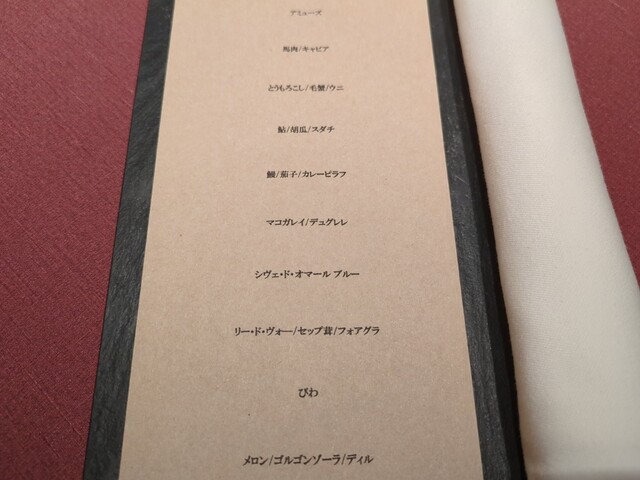 デミューズ
馬肉/キャビア
とうもろこし/毛蟹/ウニ
鮎/胡瓜/スダチ
鰻/茄子/カレーピラフ
マコガレイ/デュグレレ
シヴェ・ド・オマール ブルー
リー・ド・ヴォー/セップ茸/フォアグラ
びわ
メロン/ゴルゴンゾーラ/ディル